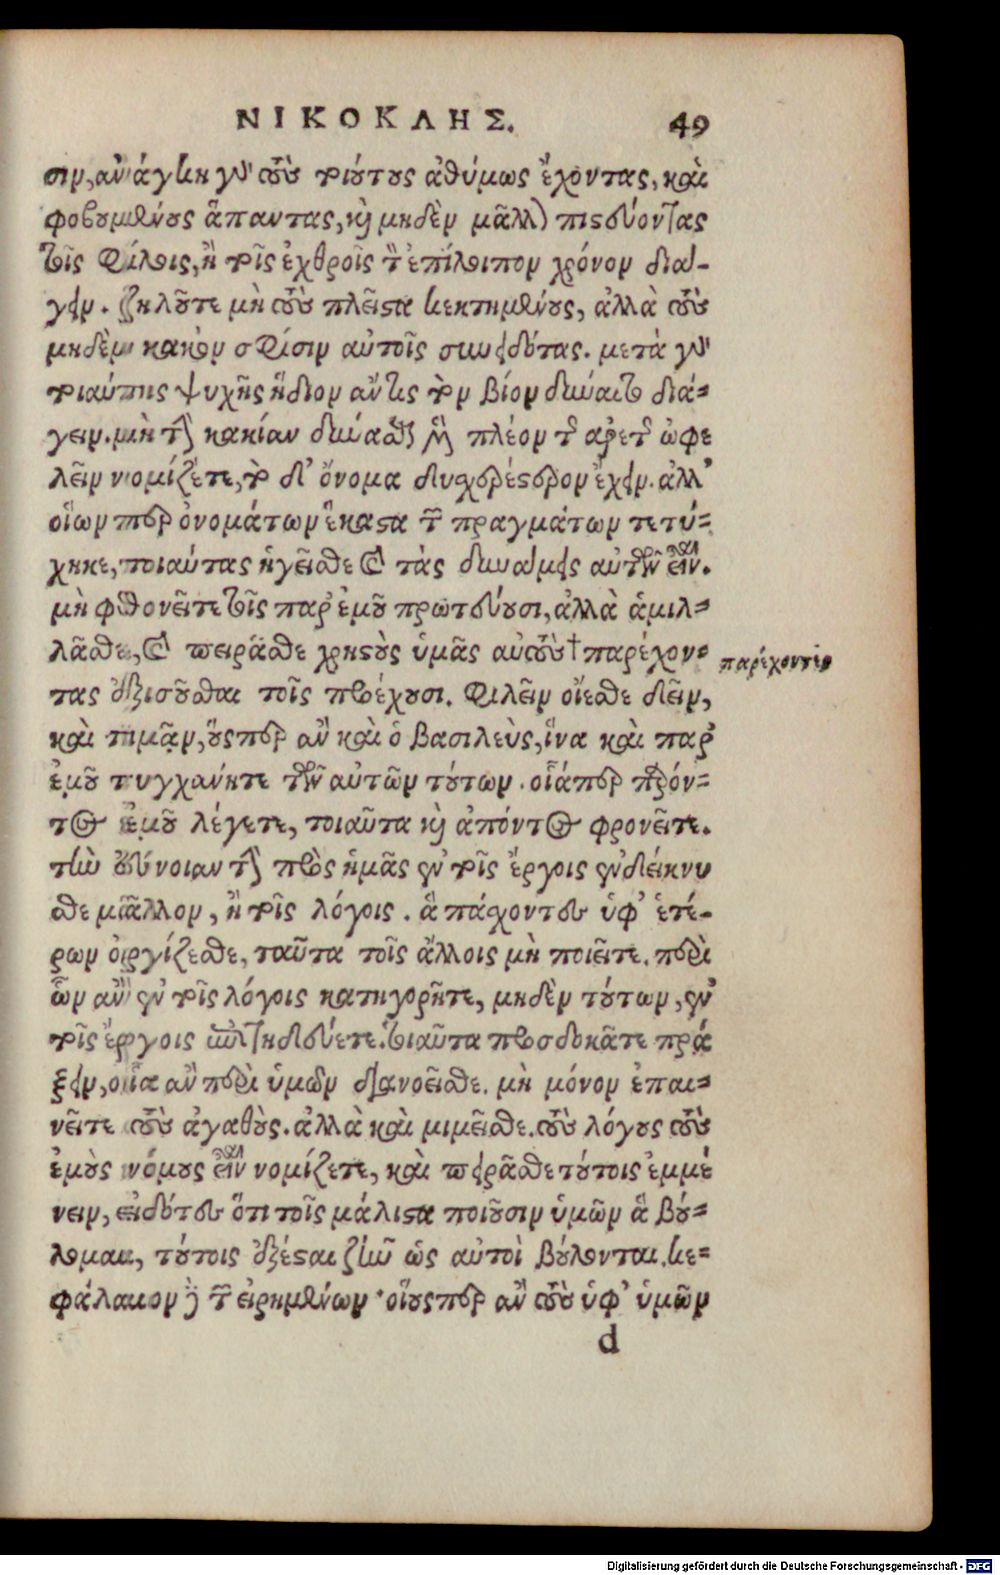 ΝΙΚΟΚΛΗΣ. 49
σιν, ἀνάγκη γὰρ τοὺς τοιούτους ἀθύμως ἔχοντας, καὶ
φοβουμένους ἅπαντας, καὶ μηδὲν μᾶλλον πιστεύοντας
τοῖς φίλοις, ἢ τοῖς ἐχθροῖς τὸν ἐπίλοιπον χρόνον διά-
γειν. ζηλοῦτε μὴ τοὺς πλεῖστα κεκτημένους, ἀλλὰ τοὺς
μηδὲν κακὸν σφίσιν αὐτοῖς συνειδότας. μετὰ γὰρ
τοιαύτης ψυχῆς ἥδιον ἄν τις τὸν βίον δύναιτο διά-
γειν. μὴ τὴν κακίαν δύνασθαι μὲν πλέον τῆς ἀρετῆς ὠφε
λεῖν νομίζετε, τὸ δ' ὄνομα δυσχερέστερον ἔχειν. ἀλλ'
οἵων περ ὀνομάτων ἕκαστα τῶν πραγμάτων τετύ-
χηκε, τοιαύτας ἡγεῖσθε καὶ τὰς δυνάμεις αὐτῶν εἶναι.
μὴ φθονεῖτε τοῖς παρ' ἐμοῦ πρωτεύουσι, ἀλλὰ ἁμιλ-
λᾶσθε, καὶ πειρᾶσθε χρηστοὺς ὑμᾶς αὐτοὺς † παρέχον- παρέχοντες
τας ἐξισοῦσθαι τοῖς προέχουσι. φιλεῖν οἴεσθε δεῖν,
καὶ τιμᾷν, οὕσπερ ἂν καὶ ὁ βασιλεὺς, ἵνα καὶ παρ'
ἐμοῦ τυγχάνητε τῶν αὐτῶν τούτων. οἷάπερ παρόν-
τος ἐμοῦ λέγετε, τοιαῦτα καὶ ἀπόντος φρονεῖτε.
τὴν εὔνοιαν τὴν πρὸς ἡμᾶς ἐν τοῖς ἔργοις ἐνδείκνυ
σθε μᾶλλον, ἢ τοῖς λόγοις. ἃ πάσχοντες ὑφ' ἑτέ-
ρων ὀργίζεσθε, ταῦτα τοῖς ἄλλοις μὴ ποιεῖτε. περὶ
ὧν ἂν ἐν τοῖς λόγοις κατηγορῆτε, μηδὲν τούτων, ἐν
τοῖς ἔργοις ἐπιτηδεύετε. τοιαῦτα προσδοκᾶτε πρά
ξειν, οἷα ἂν περὶ ὑμῶν διανοεῖσθε. μὴ μόνον ἐπαι-
νεῖτε τοὺς ἀγαθοὺς. ἀλλὰ καὶ μιμεῖσθε. τοὺς λόγους τοὺς
ἐμοὺς νόμους εἶναι νομίζετε, καὶ πειρᾶσθε τούτοις ἐμμέ
νειν, εἰδότες ὅτι τοῖς μάλιστα ποιοῦσιν ὑμῶν ἃ βού-
λομαι, τούτοις ἐξέσται ζῆν ὡς αὐτοὶ βούλονται. κε-
φάλαιον δὲ τῶν εἰρημένων· οἵουσπερ ἂν τοὺς ὑφ' ὑμῶν
d
Digitalisierung gefördert durch die Deutsche Forschungsgemeinschaft - DFG